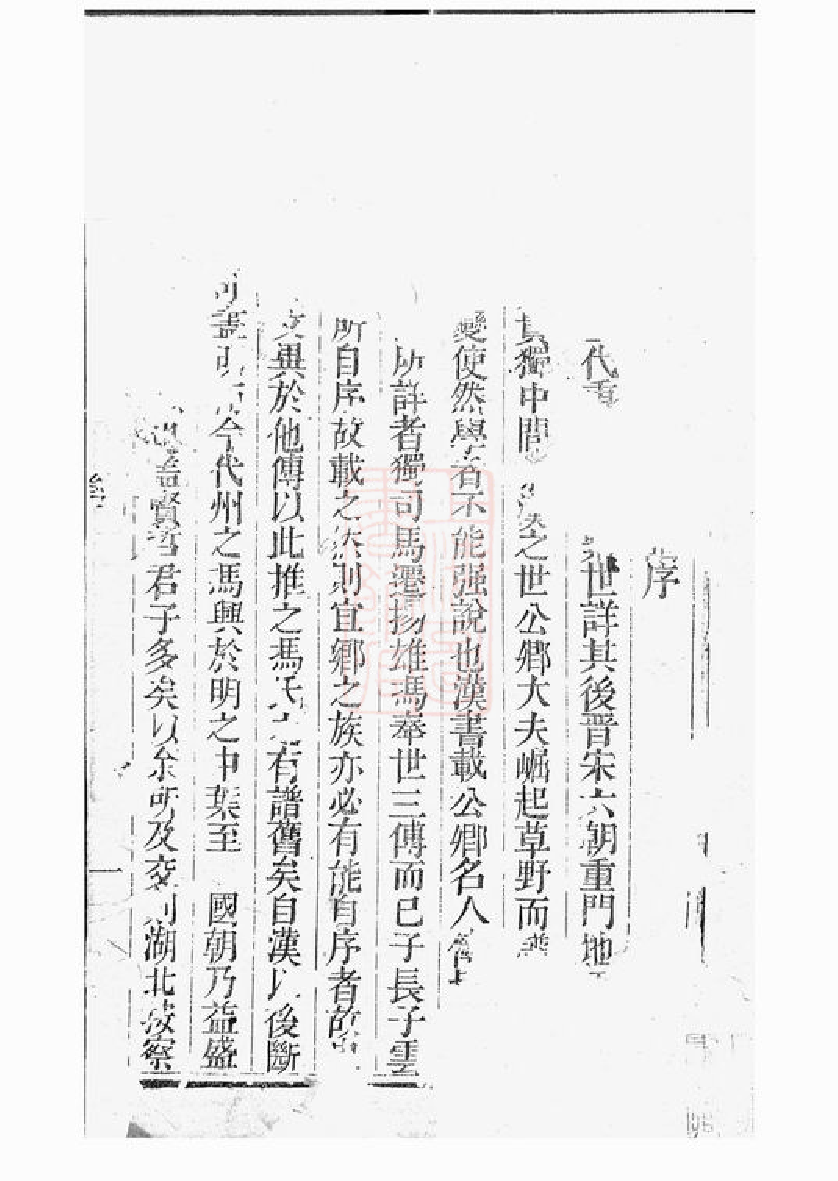 序
代 世詳其後晉宋六朝重門地
獨中間 之世公卿大夫崛起草野而
變使然學者不能强說也漢書載公卿名人
所詳者獨司馬遷揚雄馮奉世三傳而已子長子雲
所自序故載之然則宜鄉之族亦必有能自序者故
文異於他傳以此推之馮氏之有譜舊矣自漢以後斷
可 今代州之馮興於明之中葉至 國朝乃益盛
賢 君子多矣以余所及交則湖北按察